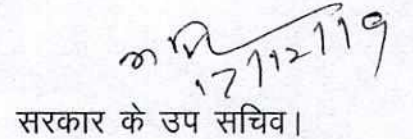 17/12/19
सरकार के उप सचिव।